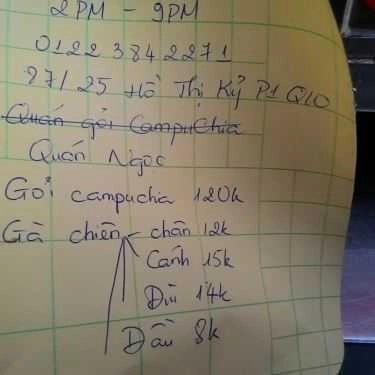 2PM - 9PM
0122 384 2271
87/25 Hồ Thị Kỷ P1 Q10
Quán gỏi CampuChia
Quán Ngọc
Gỏi campuchia 120k
Gà chiên - chân 12k
Cánh 15k
Đùi 14k
Đầu 8k